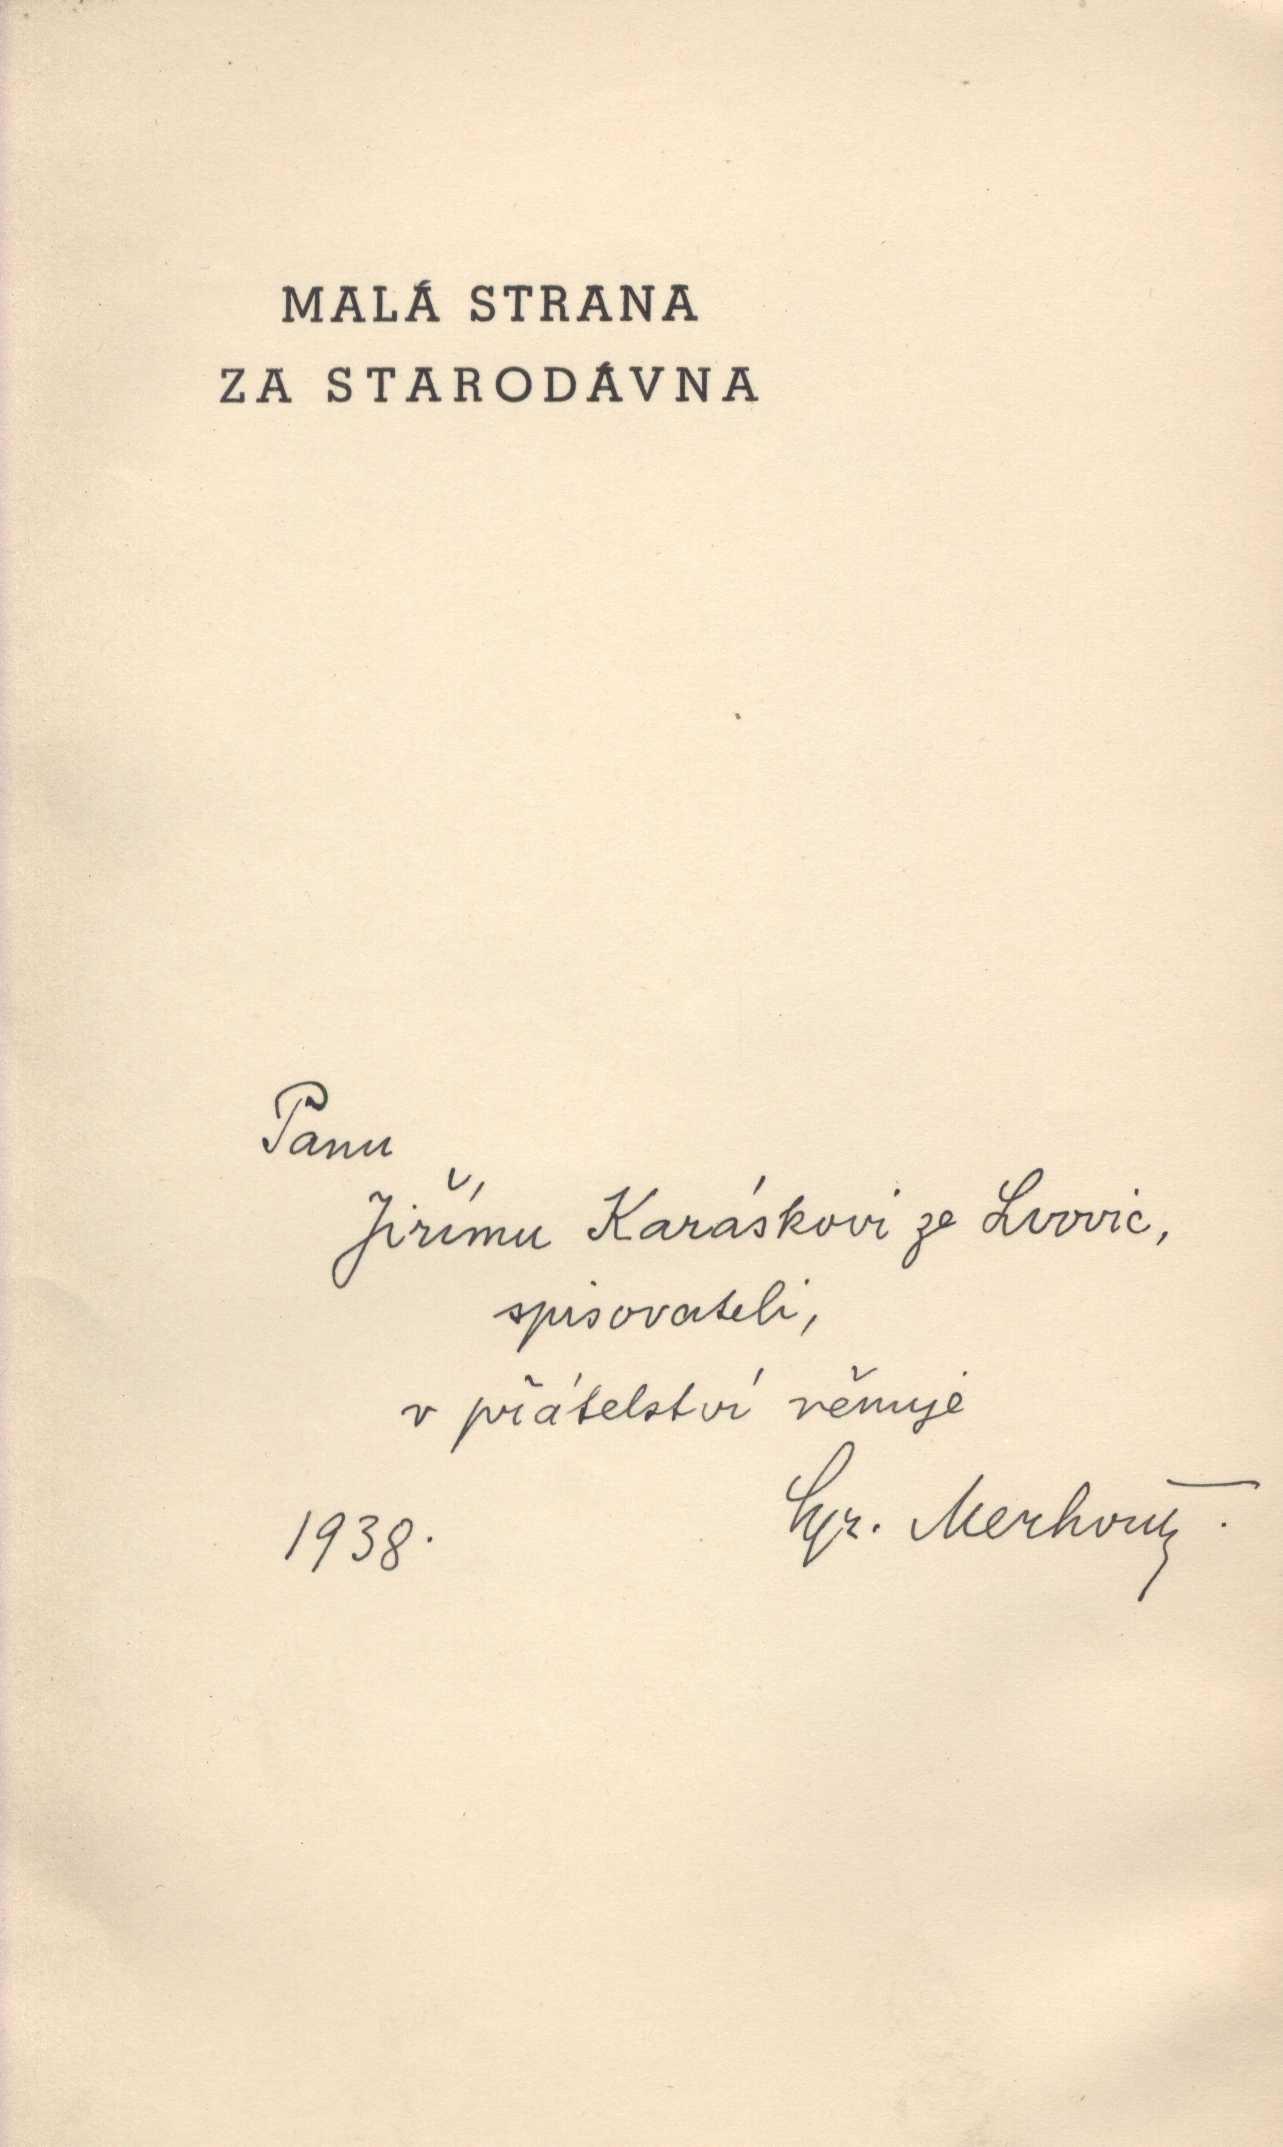 MALÁ STRANA
ZA STARODÁVNA
Panu
Jiřímu Karáskovi ze Lvovic,
spisovateli,
v přátelství věnuje
1938. Cyr. Merhout.